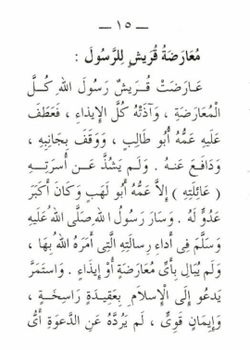 — ١٥ —
مُعَارَضَةُ قُرَيْشٍ لِلرَّسُولِ :
عَارَضَتْ قُرَيْشٌ رَسُولَ اللهِ كُلَّ
الْمُعَارَضَةِ ، وَآذَتْهُ كُلَّ الْإِيذَاءِ ، فَعَطَفَ
عَلَيْهِ عَمُّهُ أَبُو طَالِبٍ ، وَوَقَفَ بِجَانِبِهِ ،
وَدَافَعَ عَنْهُ . وَلَمْ يَشُذَّ عَنْ أُسْرَتِهِ
( عَائِلَتِهِ ) إِلَّا عَمُّهُ أَبُو لَهَبٍ وَكَانَ أَكْبَرَ
عَدُوٍّ لَهُ . وَسَارَ رَسُولُ اللهِ صَلَّى اللهُ عَلَيْهِ
وَسَلَّمَ فِي أَدَاءِ رِسَالَتِهِ الَّتِي أَمَرَهُ اللهُ بِهَا ،
وَلَمْ يُبَالِ بِأَيِّ مُعَارَضَةٍ أَوْ إِيذَاءٍ . وَاسْتَمَرَّ
يَدْعُو إِلَى الْإِسْلَامِ بِعَقِيدَةٍ رَاسِخَةٍ ،
وَإِيمَانٍ قَوِيٍّ ، لَمْ يَرُدَّهُ عَنِ الدَّعْوَةِ أَيُّ